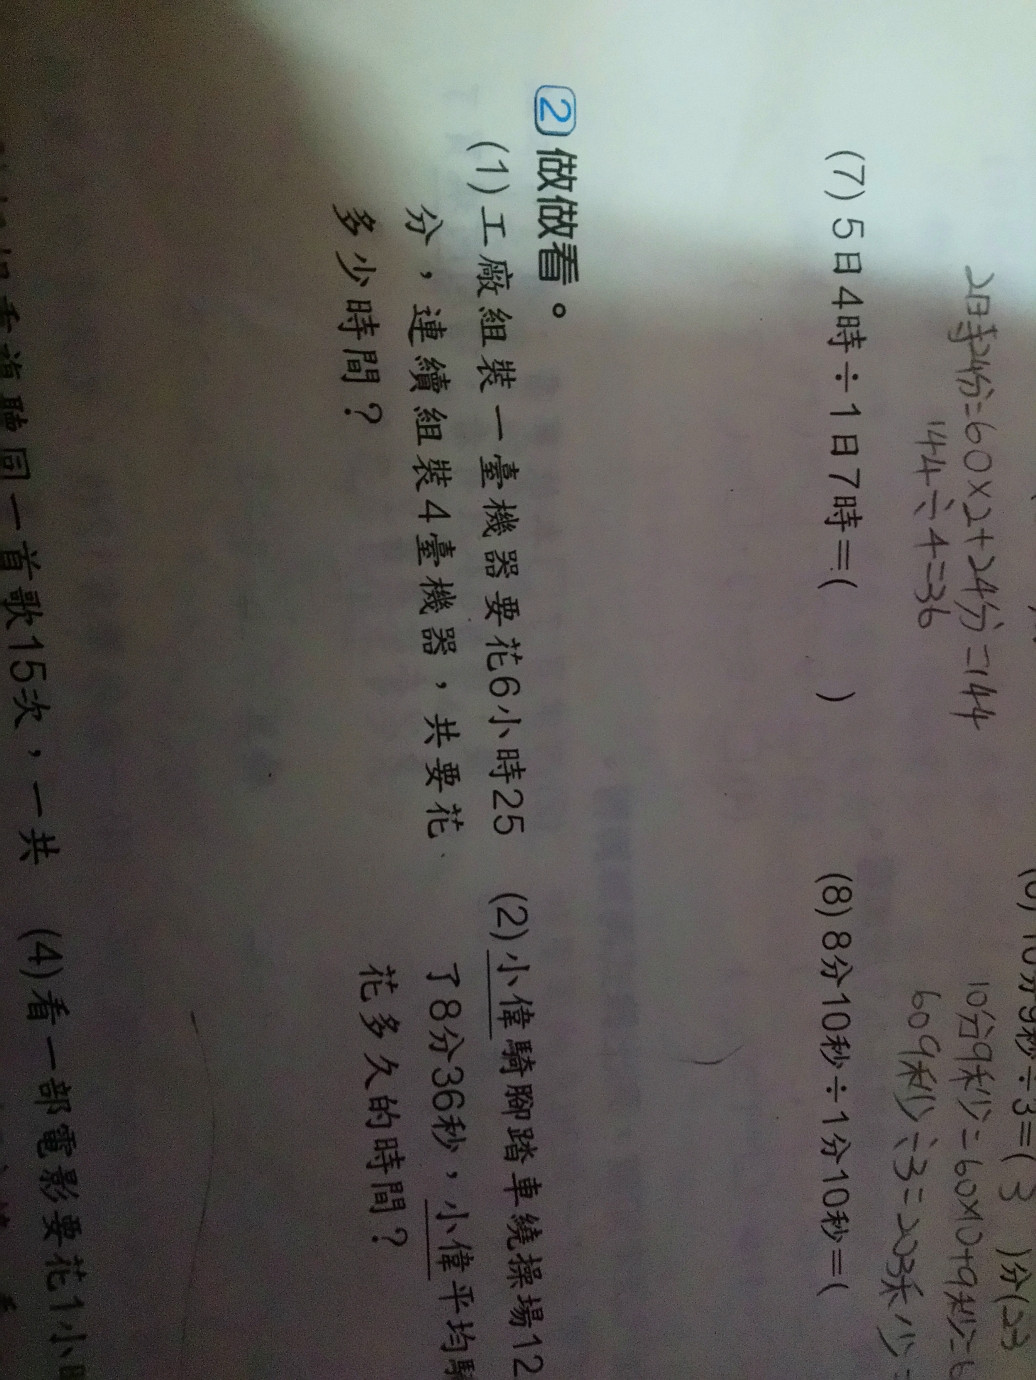 2時24分=60×2+24分=144
144÷4=36
10分9秒÷3=( 3 )分(23
10分9秒=60×10+9秒=6
609秒÷3=203秒
(7) 5日4時÷1日7時=( )
(8) 8分10秒÷1分10秒=(
2 做做看。
(1) 工廠組裝一臺機器要花6小時25
分,連續組裝4臺機器,共要花
多少時間?
(2) 小偉騎腳踏車繞操場12
了8分36秒,小偉平均騎
花多久的時間?
聽同一首歌15次,一共
(4) 看一部電影要花1小時